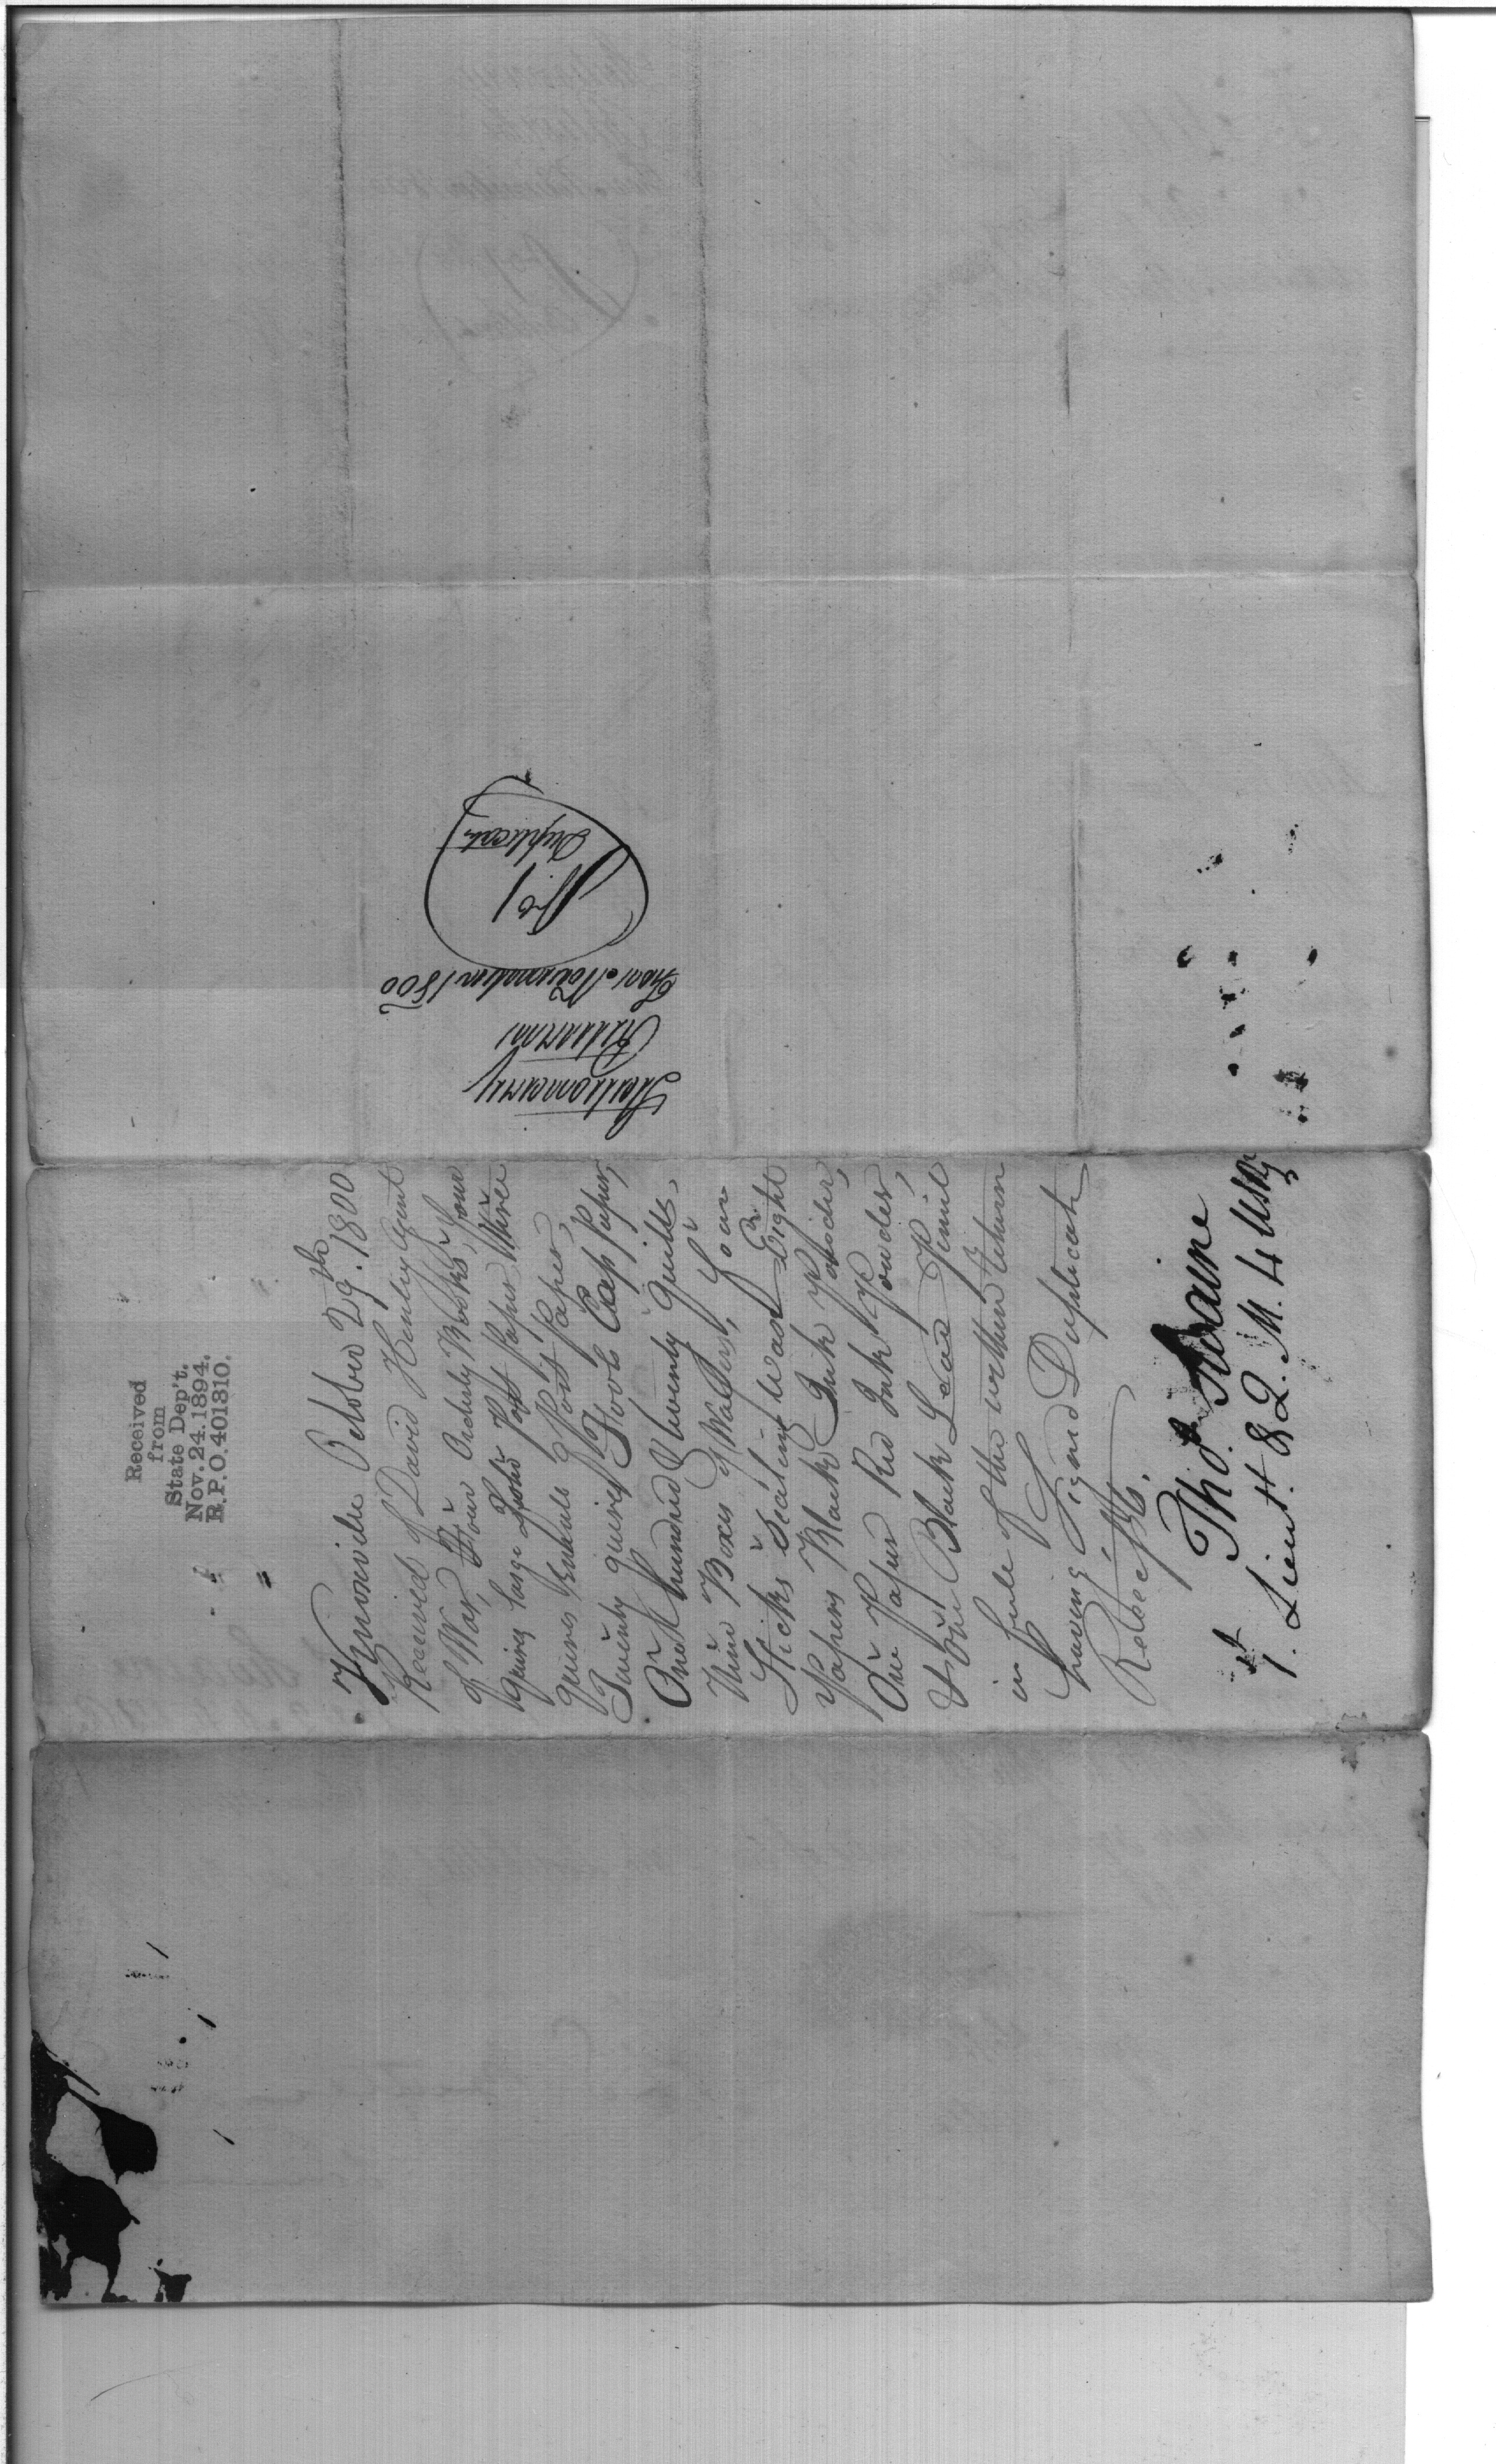 Received
from
State Dep't.
Nov. 24. 1894.
R.P.O. 401310.
Knoxville October 29th. 1800
Received of David Henley Agent
of War, Four Orderly Books, Four
quires large Post Paper Three
quires Post Paper,
Twenty quires Fools Cap Paper,
One hundred & twenty Quills,
Nine Boxes of Wafers, Four
Sticks Sealing Wax Eight
Papers Black Ink Powder,
One Paper Red Ink Powder,
& One Black Lead Pencil
in full of the within return
having Signed Duplicate
Receipts.
Tho. Swaine
1st. Lieut. & Q. M. 4 
Stationary
Returns
Novemeber 1800
No 1
Duplicate